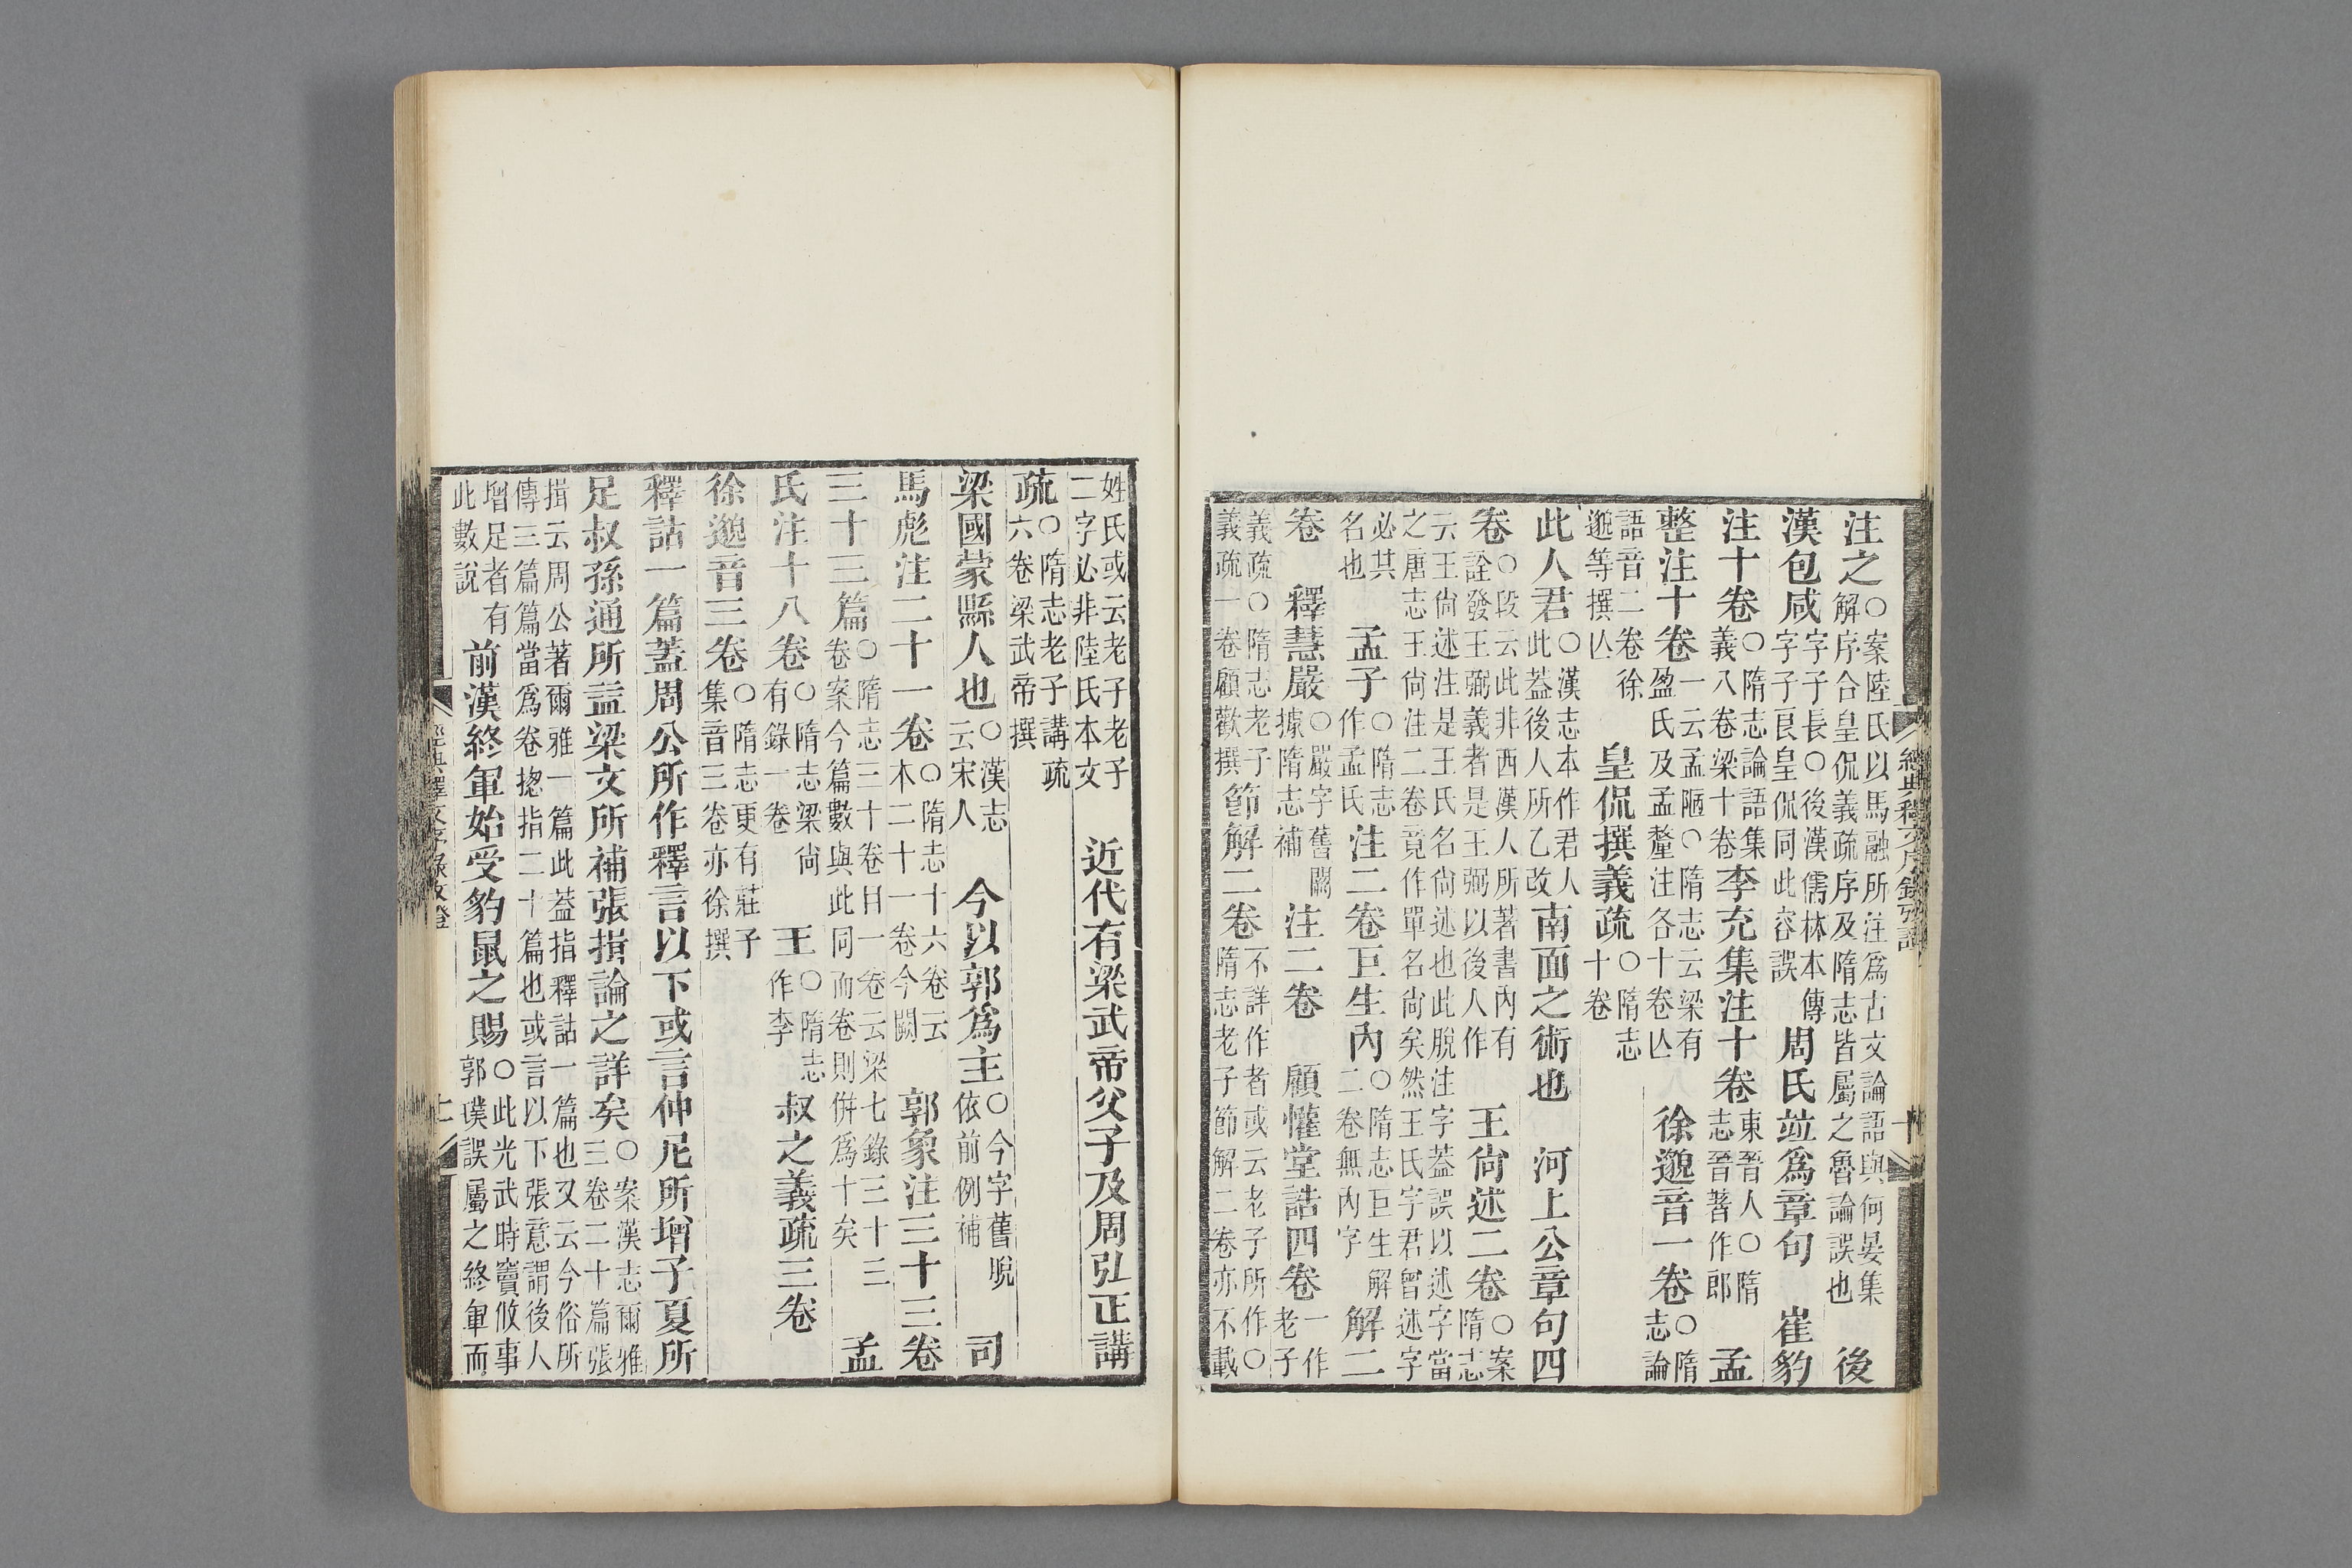 注之○案陸氏以馬融所注爲古文論語與何晏集解序合皇侃義疏序及隋志皆屬之魯論誤也　後
漢包咸字子長○後漢儒林本傳字子良皇侃同此容誤周氏竝爲章句　崔豹
注十卷○隋志論語集義八卷梁十卷李充集注十卷東晉人○隋志晉著作郎　孟
整注十卷一云孟陋○隋志云梁有盈氏及孟釐注各十卷亾　徐邈音一卷○隋志論
語音二卷徐邈等撰亾　皇侃撰義疏○隋志十卷
此人君○漢志本作君人此葢後人所乙改南面之術也　河上公章句四
卷○段云此非西漢人所著書內有詮發王弼義者是王弼以後人作　王尙述二卷○案隋志
云王尙述注是王氏名尙述也此脫注字葢誤以述字當之唐志王尙注二卷竟作單名尙矣然王氏字君曾述字
必其名也　孟子○隋志作孟氏注二卷　巨生內○隋志巨生解二卷無內字解二
卷　釋慧嚴○嚴字舊闕據隋志補注二卷　顧懽堂誥四卷一作老子
義疏○隋志老子義疏一卷顧歡撰節解二卷不詳作者或云老子所作○隋志老子節解二卷亦不載
姓氏或云老子老子二字必非陸氏本文　近代有梁武帝父子及周弘正講
疏○隋志老子講疏六卷梁武帝撰
梁國蒙縣人也○漢志云宋人　今以郭爲主○今字舊脫依前例補　司
馬彪注二十一卷○隋志十六卷云本二十一卷今闕　郭象注三十三卷
三十三篇○隋志三十卷目一卷云梁七錄三十三卷案今篇數與此同而卷則併爲十矣　孟
氏注十八卷○隋志梁尙有錄一卷　王○隋志作李叔之義疏三卷
徐邈音三卷○隋志更有莊子集音三卷亦徐撰
釋詁一篇蓋周公所作釋言以下或言仲尼所增子夏所
足叔孫通所益梁文所補張揖論之詳矣○案漢志爾雅三卷二十篇張
揖云周公著爾雅一篇此葢指釋詁一篇也又云今俗所傳三篇篇當爲卷揔指二十篇也或言以下張意謂後人
增足者有此數說　前漢終軍始受豹鼠之賜○此光武時竇攸事郭璞誤屬之終軍而